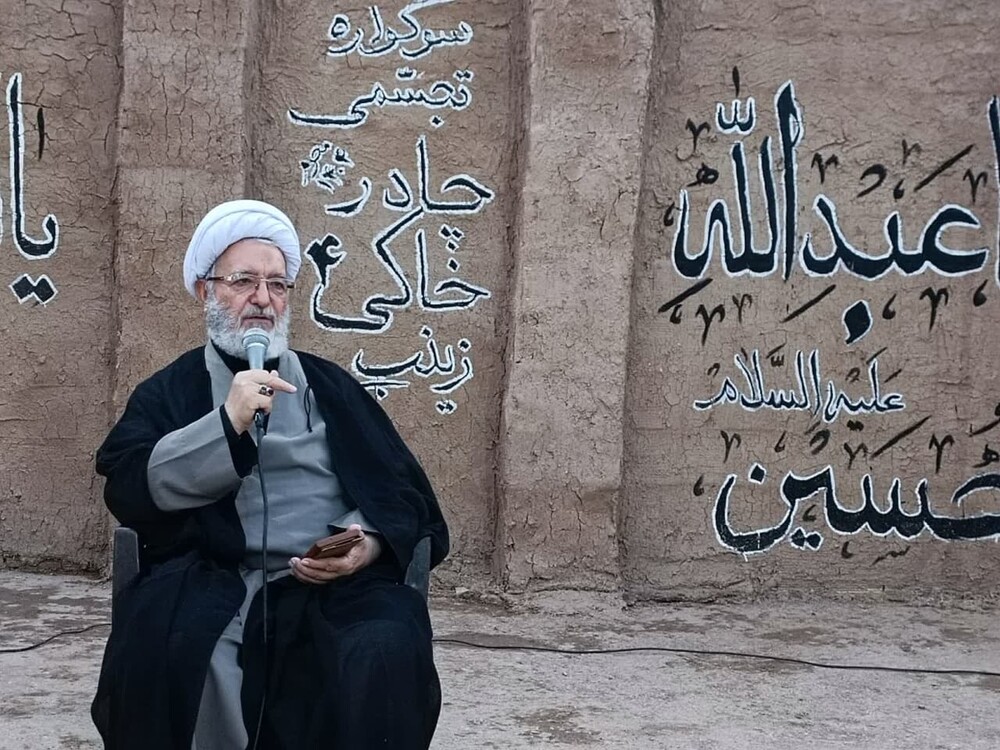 سوگواره
تجسّمی
چادر
خاکی ۴
زینب
یا
عبدالله
علیه السّلام
حسین